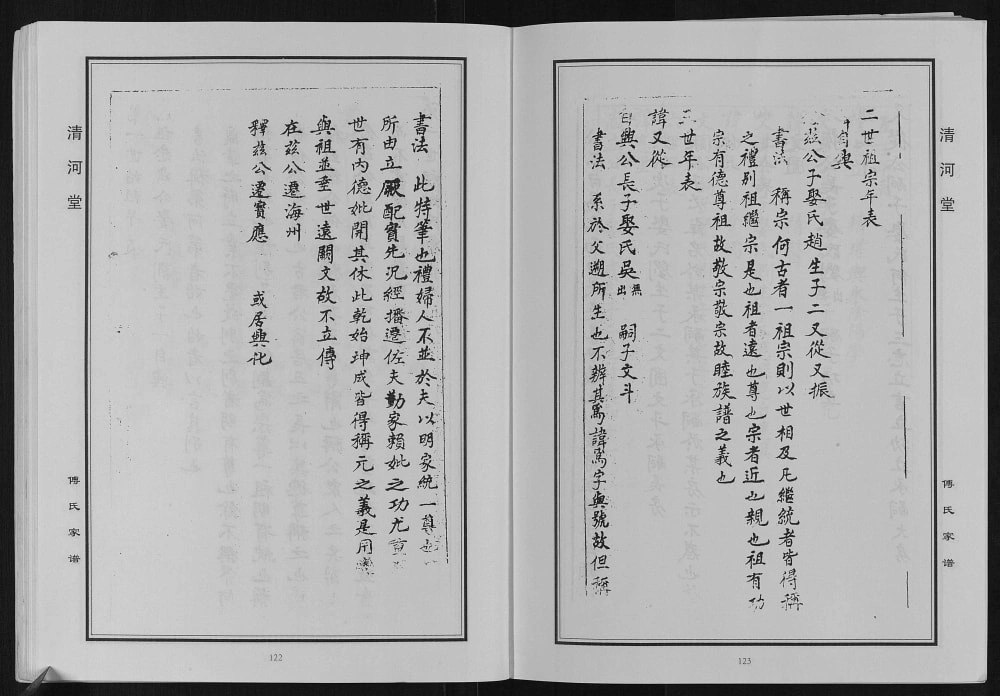 清河堂
傅氏家谱
書法 此特筆也禮婦人不並於夫以明家統一尊也
所由立厥配實先况經播遷佐夫勤家賴妣之功尤重
世有內德妣開其休此乾始坤成皆得稱元之義是用
與祖並垂世遠闕文故不立傳
在茲公遷海州
釋茲公遷寶應 或居興化
122
清河堂
傅氏家谱
二世祖宗年表
自興
茲公子娶氏趙生子二又從又振
書法 稱宗何古者一祖宗則以世相及凡繼統者皆得稱
之禮別祖繼宗是也祖者遠也尊也宗者近也親也祖有功
宗有德尊祖故敬宗敬宗故睦族譜之義也
三世年表
諱又從
自興公長子娶氏吳無出 嗣子文斗
書法 系於父遡所生也不辨其為諱為字與號故但稱
123